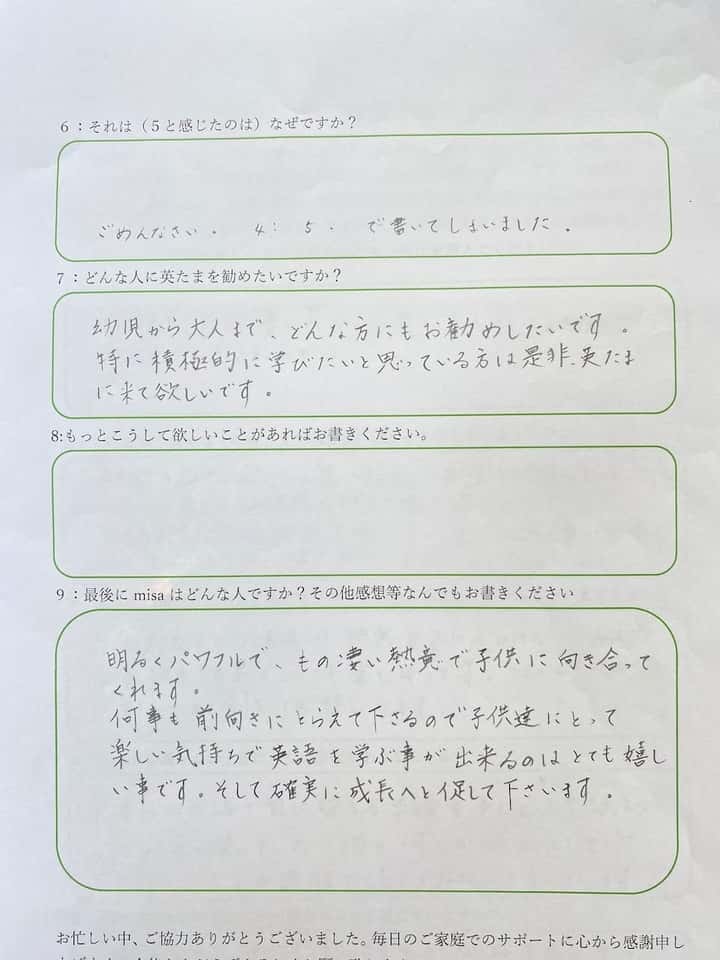 6：それは（5と感じたのは）なぜですか？
ごめんなさい。 4： 5. で書いてしまいました。
7：どんな人に英たまを勧めたいですか？
幼児から大人まで、どんな方にもお勧めしたいです。
特に積極的に学びたいと思っている方は是非、英たま
に来て欲しいです。
8:もっとこうして欲しいことがあればお書きください。
9：最後に misa はどんな人ですか？その他感想等なんでもお書きください
明るくパワフルで、もの凄い熱意で子供に向き合って
くれます。
何事も前向きにとらえて下さるので子供達にとって
楽しい気持ちで英語を学ぶ事が出来るのはとても嬉し
い事です。そして確実に成長へと促して下さいます。
お忙しい中、ご協力ありがとうございました。毎日のご家庭でのサポートに心から感謝申し